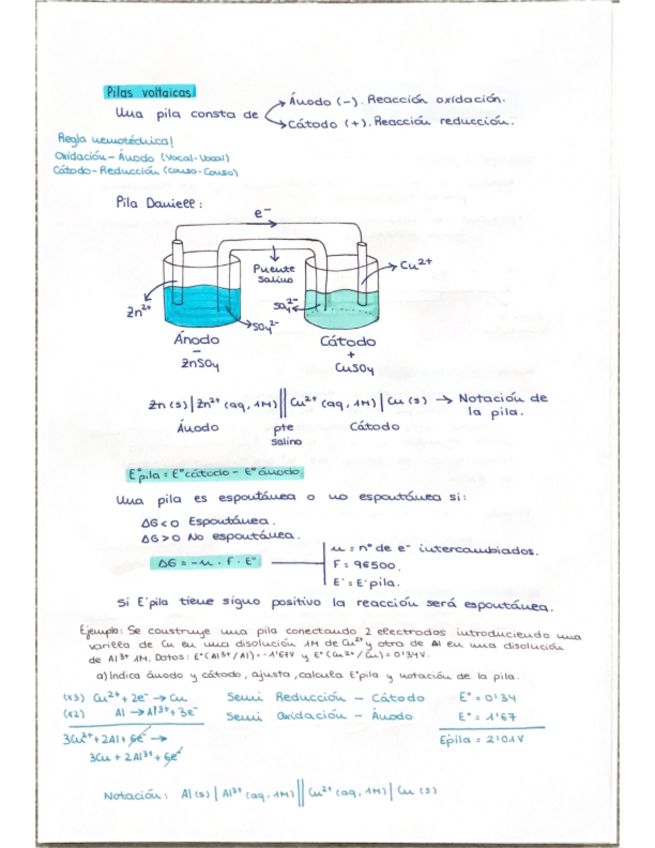 Pilas voltaicas
Una pila consta de
Ánodo (-). Reacción oxidación.
Cátodo (+). Reacción reducción.
Regla nemotécnica!
Oxidación - Ánodo (Vocal-Vocal)
Cátodo - Reducción (Conso-Conso)
Pila Daniell:
e⁻
Puente salino
Cu²⁺
Zn²⁺
SO₄²⁻
SO₄²⁻
Ánodo
-
ZnSO₄
Cátodo
+
CuSO₄
Zn (s) | Zn²⁺ (aq, 1M) || Cu²⁺ (aq, 1M) | Cu (s) → Notación de
la pila.
Ánodo pte Cátodo
salino
E°pila = E°cátodo - E°ánodo
Una pila es espontánea o no espontánea si:
ΔG < 0 Espontánea.
ΔG > 0 No espontánea.
ΔG = -n · F · E°
n = n° de e⁻ intercambiados.
F = 96500.
E° = E°pila.
Si E°pila tiene signo positivo la reacción será espontánea.
Ejemplo: Se construye una pila conectando 2 electrodos introduciendo una
varilla de Cu en una disolución 1M de Cu²⁺ y otra de Al en una disolución
de Al³⁺ 1M. Datos: E°(Al³⁺/Al) = -1'67V y E°(Cu²⁺/Cu) = 0'34V.
a) Indica ánodo y cátodo, ajusta, calcula E°pila y notación de la pila.
(x3) Cu²⁺ + 2e⁻ → Cu Semi Reducción - Cátodo E° = 0'34
(x2) Al → Al³⁺ + 3e⁻ Semi Oxidación - Ánodo E° = 1'67
3Cu²⁺ + 2Al + 6e⁻ → E°pila = 2'01V
3Cu + 2Al³⁺ + 6e⁻
Notación: Al (s) | Al³⁺ (aq, 1M) || Cu²⁺ (aq, 1M) | Cu (s)